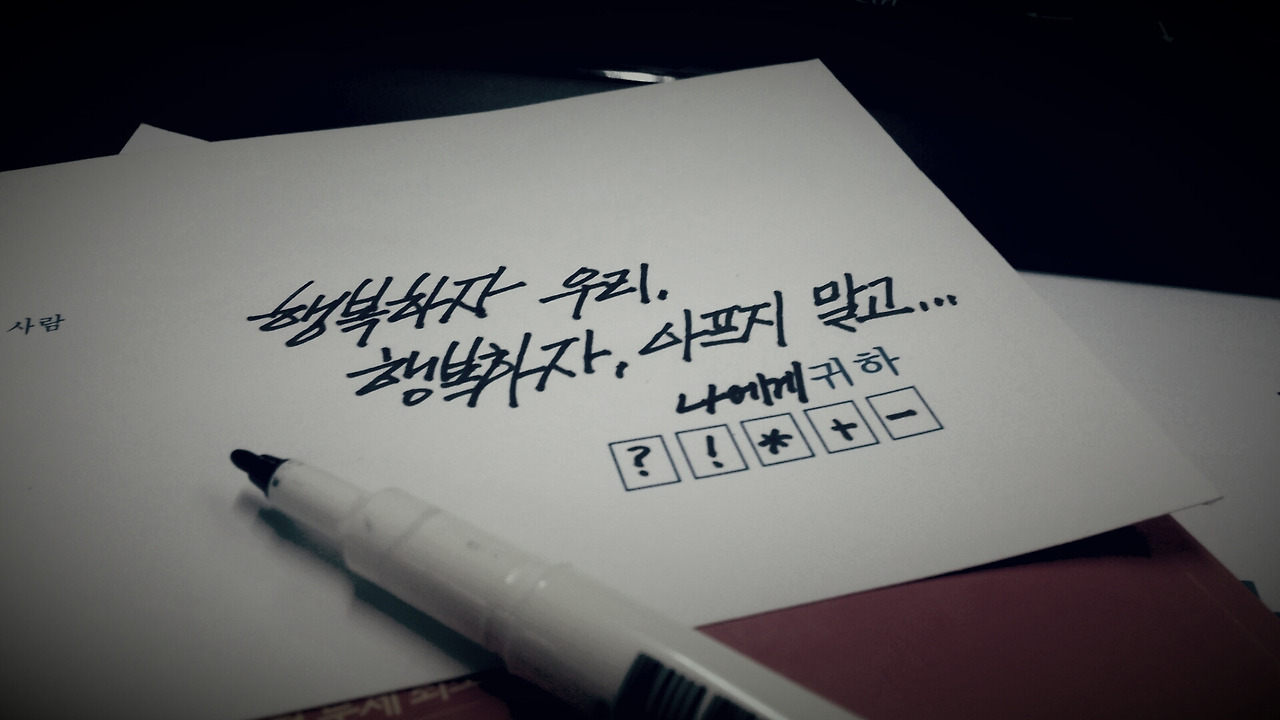 사람
행복하자 우리.
행복하자, 아프지 말고...
나에게 귀하
? ! * + -